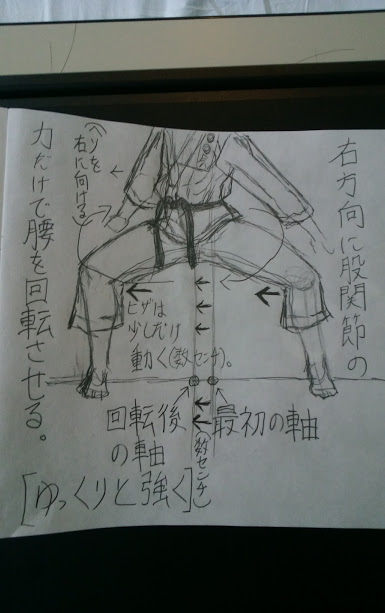 右方向に股関節の
力だけで腰を回転させる。
(ヘソを
右に向ける)
ヒザは
少しだけ
動く(数センチ)。
最初の軸
回転後
の軸
(数センチ)
[ゆっくりと強く]